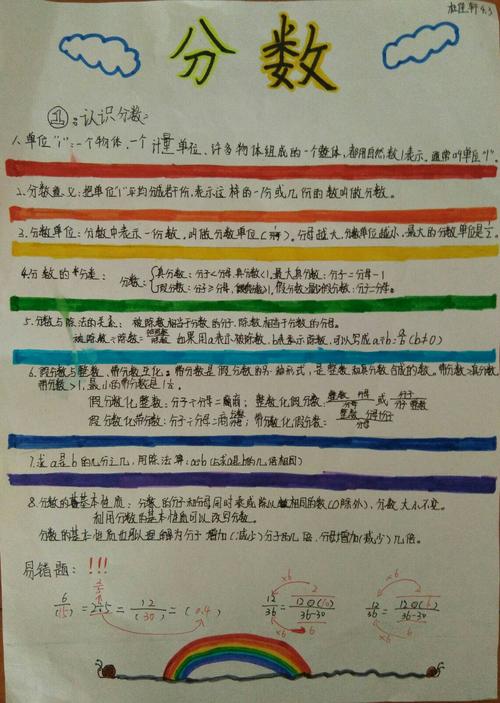 4.3
分数
①:认识分数:
1.单位"1":一个物体、一个计量单位、许多物体组成的一个整体,都用自然数1表示。通常叫单位"1"。
2.分数意义:把单位"1"平均分成若干份,表示这样的一份或几份的数叫做分数。
3.分数单位:分数中表示一份数,叫做分数单位。分母越大,分数单位越小,最大的分数单位是1/2。
4.分数的分类: 分数: 真分数:分子<分母,真分数<1,最大真分数:分子=分母-1
假分数:分子≥分母,假分数≥1,假分数:分子=分母。
5.分数与除法的关系: 被除数相当于分数的分子,除数相当于分数的分母。
被除数÷除数= 如果用a表示被除数,b表示除数,可以写成a÷b=a/b(b≠0)
6.假分数与整数、带分数互化。带分数是假分数的另一种形式,是整数和真分数合成的数。带分数>真分数
带分数>1,最小的带分数是
假分数化整数:分子÷分母=商; 整数化假分数: 或
假分数化带分数:分子÷分母=商 带分数化假分数=
7.求a是b的几分之几,用除法算:a÷b(与求a是b的几倍相同)
8.分数的基本性质:分数的分子和分母同时乘或除以相同的数(0除外),分数大小不变。
利用分数的基本性质可以改写分数。
分数的基本性质也可以理解为分子增加(减少)分子的几倍,分母增加(减少)几倍。
易错题:!!!
6/(15)=2÷5=12/(30)=(0.4)
×6 2 ×6 2
12/36= 36-30 12/36= 36-30
×6 ×6